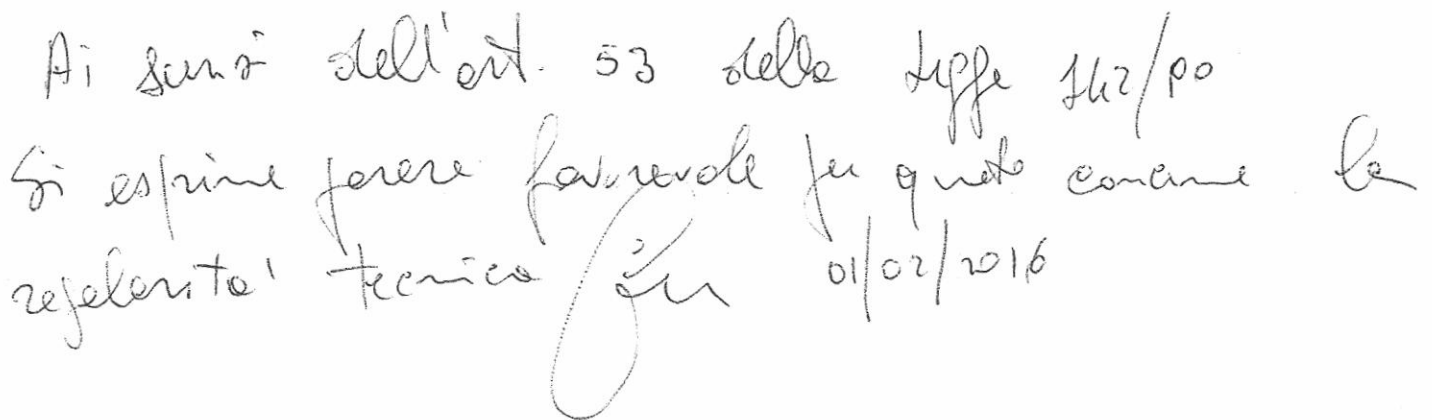 Ai sensi dell'art. 53 della Legge 142/90
Si esprime parere favorevole per quanto concerne la
regolarita' tecnica 01/02/2016